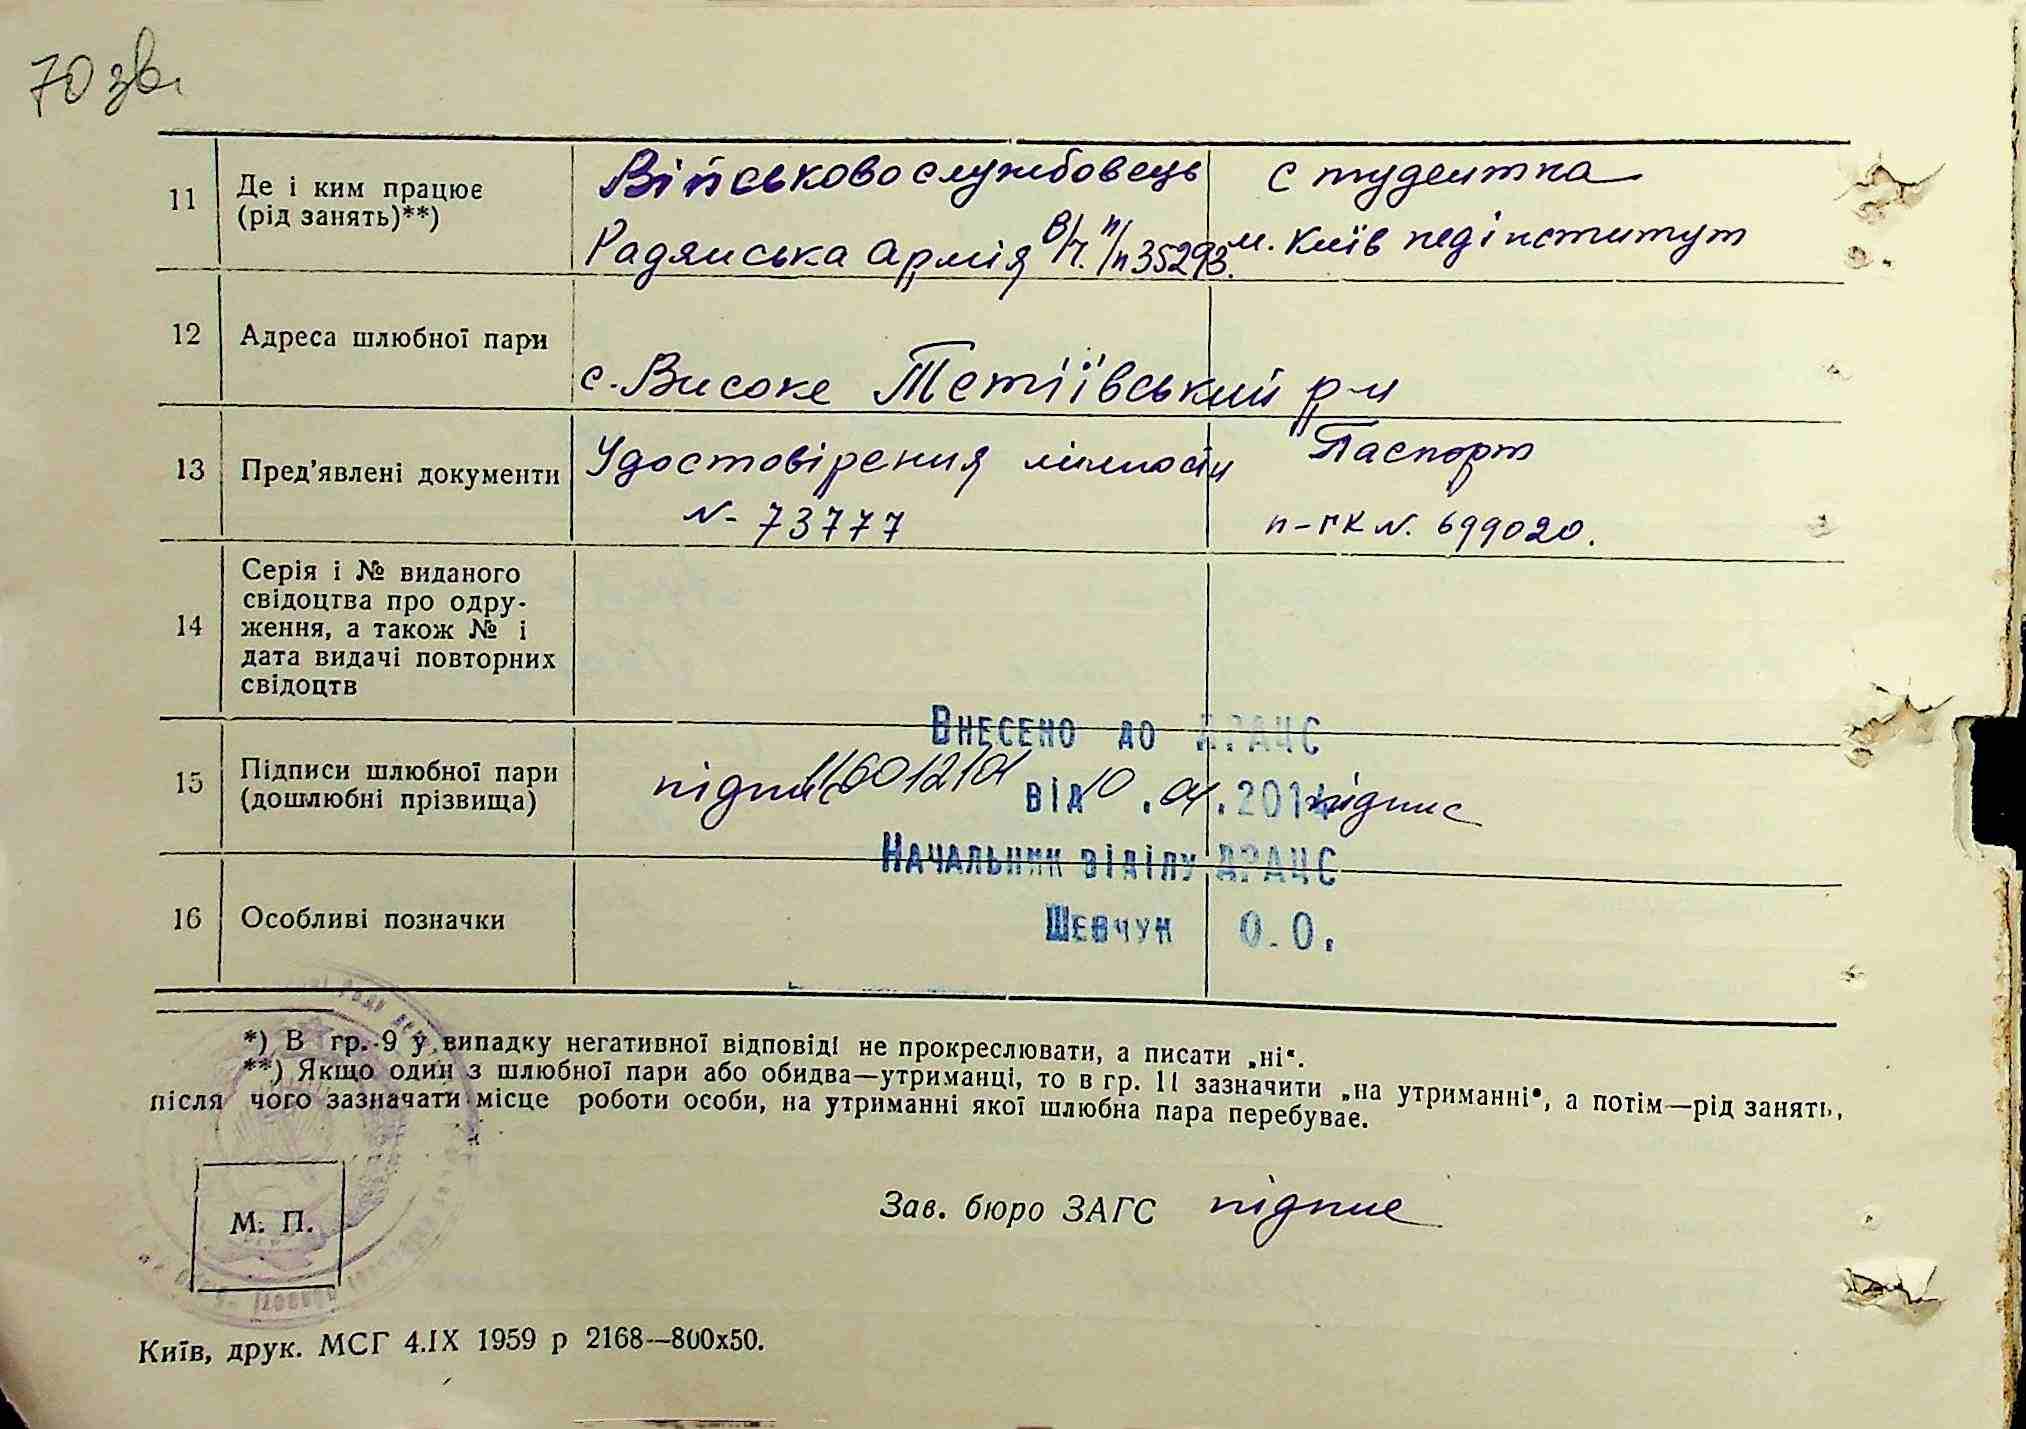 70 зв.
11 Де і ким працює Військовослужбовець студентка
(рід занять)**) Радянська Армія в/ч. п/п 35293. м. Київ педінститут
12 Адреса шлюбної пари
с. Високе Тетіївський р-н
13 Пред'явлені документи Удостовірения личности Паспорт
N- 73777 п-ГК N. 699020.
Серія і № виданого
свідоцтва про одру-
14 ження, а також № і
дата видачі повторних
свідоцтв
Внесено до ДРАЦС
15 Підписи шлюбної пари підпис 116012101
(дошлюбні прізвища) від 10.01.2014 підпис
Начальник відділу ДРАЦС
16 Особливі позначки Шевчук О.О.
*) В гр. 9 у випадку негативної відповіді не прокреслювати, а писати „ні“.
**) Якщо один з шлюбної пари або обидва—утриманці, то в гр. 11 зазначити „на утриманні“, а потім—рід занять,
після чого зазначати місце роботи особи, на утриманні якої шлюбна пара перебуває.
М. П.
Зав. бюро ЗАГС підпис
Київ, друк. МСГ 4.IX 1959 р 2168—800х50.